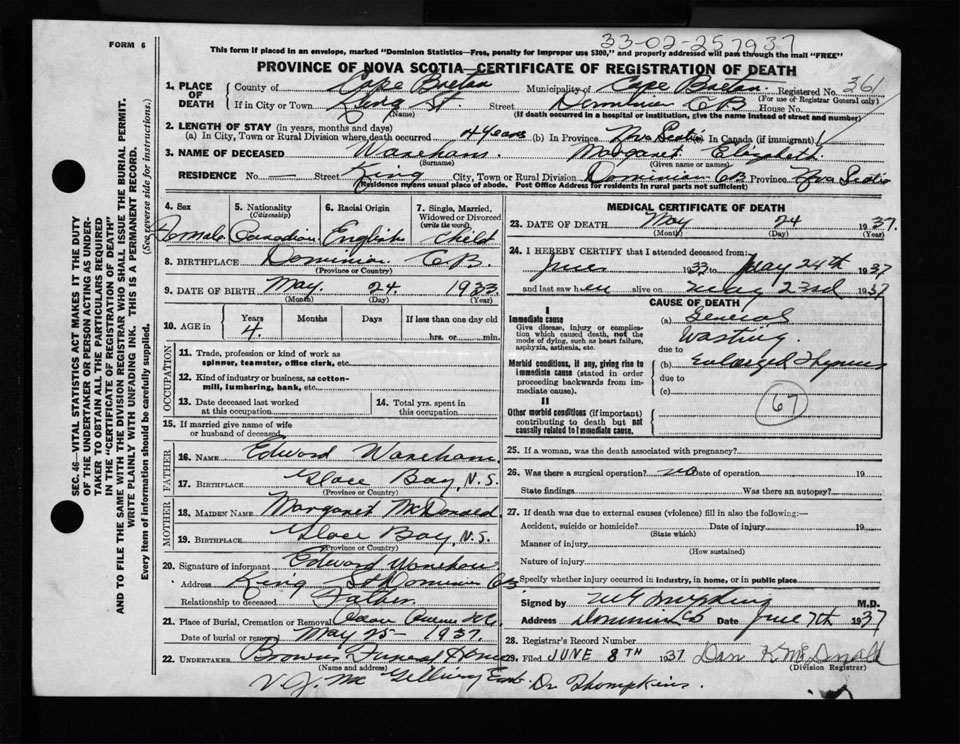 FORM 6
33-02-257937
This form if placed in an envelope, marked "Dominion Statistics—Free, penalty for improper use $300," and properly addressed will pass through the mail "FREE"
PROVINCE OF NOVA SCOTIA—CERTIFICATE OF REGISTRATION OF DEATH
SEC. 46—VITAL STATISTICS ACT MAKES IT THE DUTY
OF THE UNDERTAKER OR PERSON ACTING AS UNDER-
TAKER TO OBTAIN ALL THE PARTICULARS REQUIRED
IN THE "CERTIFICATE OF REGISTRATION OF DEATH"
AND TO FILE THE SAME WITH THE DIVISION REGISTRAR WHO SHALL ISSUE THE BURIAL PERMIT.
WRITE PLAINLY WITH UNFADING INK. THIS IS A PERMANENT RECORD.
Every item of information should be carefully supplied. (See reverse side for instructions.)
1. PLACE OF DEATH
County of Cape Breton Municipality of Cape Breton Registered No. 361
(For use of Registrar General only)
If in City or Town King St. Street Dominion CB House No.
(Name) (If death occurred in a hospital or institution, give the name instead of street and number)
2. LENGTH OF STAY (in years, months and days)
(a) In City, Town or Rural Division where death occurred 4 years (b) In Province Nova Scotia In Canada (if immigrant)
3. NAME OF DECEASED Wareham Margaret Elizabeth
(Surname) (Given name or names)
RESIDENCE No. — Street King City, Town or Rural Division Dominion CB Province Nova Scotia
(Residence means usual place of abode. Post Office Address for residents in rural parts not sufficient)
4. Sex 5. Nationality (Citizenship) 6. Racial Origin 7. Single, Married, Widowed or Divorced (write the word)
Female Canadian English Child
8. BIRTHPLACE Dominion C.B.
(Province or Country)
9. DATE OF BIRTH May 24 1933
(Month) (Day) (Year)
10. AGE in Years Months Days If less than one day old
4. hrs. or min.
OCCUPATION
11. Trade, profession or kind of work as
spinner, teamster, office clerk, etc.
12. Kind of industry or business, as cotton-
mill, lumbering, bank, etc.
13. Date deceased last worked
at this occupation
14. Total yrs. spent in
this occupation
15. If married give name of wife
or husband of deceased
FATHER
16. NAME Edward Wareham
17. BIRTHPLACE Glace Bay, N.S.
(Province or Country)
MOTHER
18. MAIDEN NAME Margaret McDonald
19. BIRTHPLACE Glace Bay, N.S.
(Province or Country)
20. Signature of informant Edward Wareham
Address King St Dominion CB
Relationship to deceased Father
21. Place of Burial, Cremation or Removal
Date of burial or removal May 25 - 1937
22. UNDERTAKER Browns Funeral Home
(Name and address)
V.J. Dr Thompkins.
MEDICAL CERTIFICATE OF DEATH
23. DATE OF DEATH May 24 1937
(Month) (Day) (Year)
24. I HEREBY CERTIFY that I attended deceased from:
June 1933 to May 24th 1937
and last saw her alive on May 23rd 1937
CAUSE OF DEATH
I
Immediate cause
Give disease, injury or complica-
tion which caused death, not the
mode of dying, such as heart failure,
asphyxia, asthenia, etc.
(a) General
Wasting
due to
Morbid conditions, if any, giving rise to
immediate cause (stated in order
proceeding backwards from im-
mediate cause).
(b) Enlarged Thymus
due to
(c)
67
II
Other morbid conditions (if important)
contributing to death but not
causally related to immediate cause.
25. If a woman, was the death associated with pregnancy?
26. Was there a surgical operation? no Date of operation 19
State findings Was there an autopsy?
27. If death was due to external causes (violence) fill in also the following:—
Accident, suicide or homicide? Date of injury 19
(State which)
Manner of injury
(How sustained)
Nature of injury
Specify whether injury occurred in industry, in home, or in public place
Signed by M.D.
Address Dominion CB Date June 7th 1937
28. Registrar's Record Number
29. Filed JUNE 8TH 1937 Dan K McDonald
(Division Registrar)